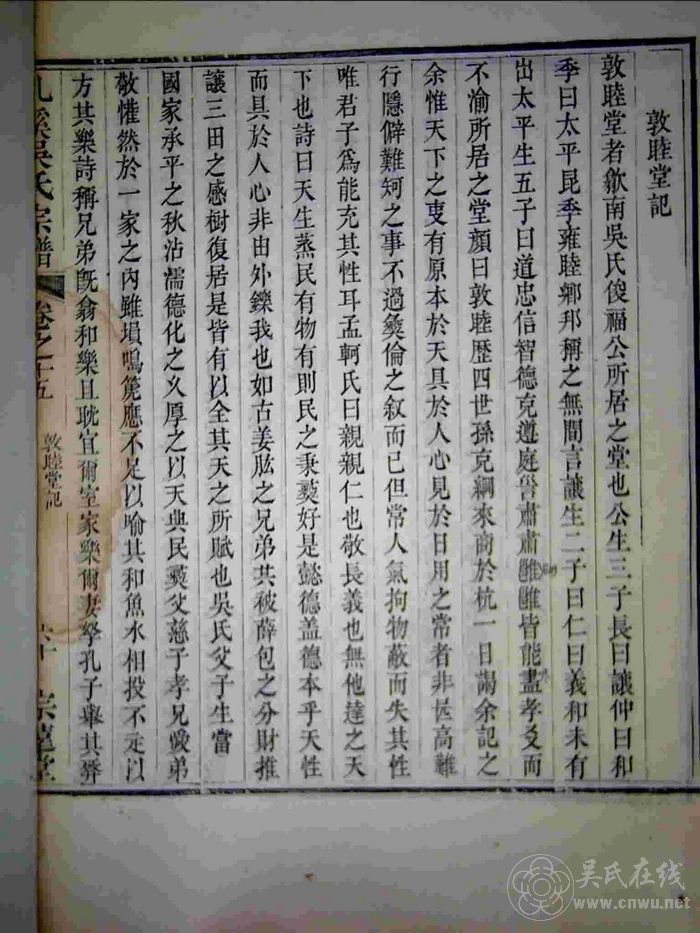 敦睦堂記
敦睦堂者歙南吳氏俊福公所居之堂也公生三子長曰讓仲曰和
季曰太平昆季雍睦鄉邦稱之無間言讓生二子曰仁曰義和未有
出太平生五子曰道忠信智德克遵庭訾肅肅雝雝皆能盡孝爻而
不渝所居之堂顏曰敦睦歷四世孫克綱來商於杭一日謁余記之
余惟天下之叓有原本於天具於人心見於日用之常者非甚高難
行隱僻難知之事不過彜倫之敘而已但常人氣拘物蔽而失其性
唯君子爲能充其性耳孟軻氏曰親親仁也敬長義也無他達之天
下也詩曰天生蒸民有物有則民之秉彜好是懿德盖德本乎天性
而具於人心非由外鑠我也如古姜肱之兄弟共被薛包之分財推
讓三田之感樹復居是皆有以全其天之所賦也吳氏父子生當
國家承平之秋沾濡德化之乆厚之以天典民彜父慈子孝兄愛弟
敬懽然於一家之內雖塤鳴箎應不足以喻其和魚水相投不足以
方其樂詩稱兄弟旣翕和樂且耽宜爾室家樂爾妻孥孔子舉其
溪吳氏宗譜
卷之十五
敦睦堂記
六十
宗達堂
吳氏在线
www.cnwu.net